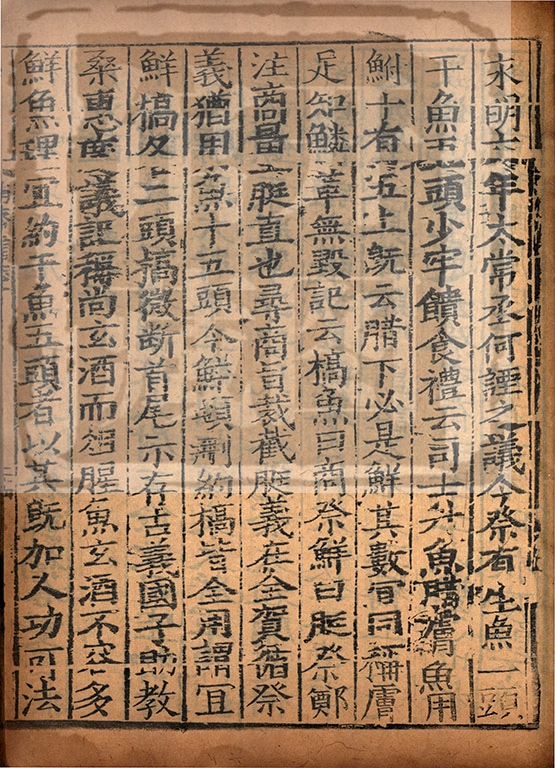 永明六年太常丞何諲之議今祭有生魚一頭
干魚五頭少牢饋食禮云司士升魚腊膚魚用
鮒十有五上既云腊下必是鮮其數宜同稱膚
足知鱗革無毀記云槁魚曰商祭鮮曰脡祭鄭
注商量脡直也尋商旨裁截脡義在全賀循祭
義猶用魚十五頭今鮮頓刪約槁皆全用謂宜
鮮槁各二頭槁微斷首尾示存古義國子助教
桑惠度議記稱尚玄酒而俎腥魚玄酒不容多
鮮魚理宜約干魚五頭者以其既加人功可法